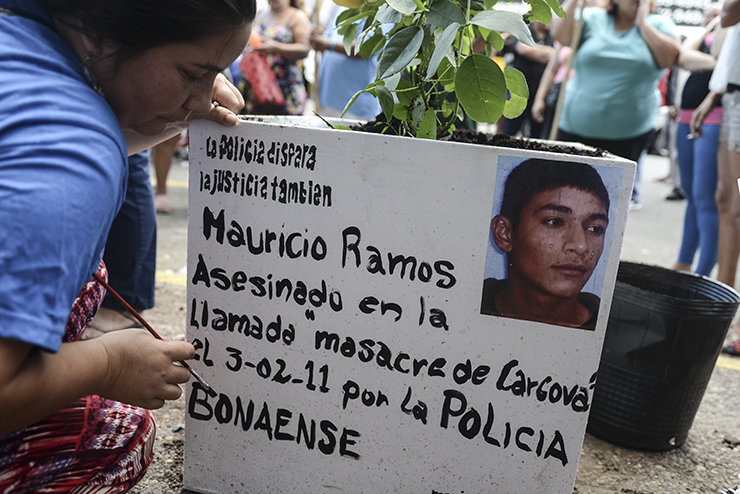 La Policia dispara
la justicia tambien
Mauricio Ramos
Asesinado en la
llamada "masacre de Carcova"
el 3-02-11 por la Policia
Bonaense